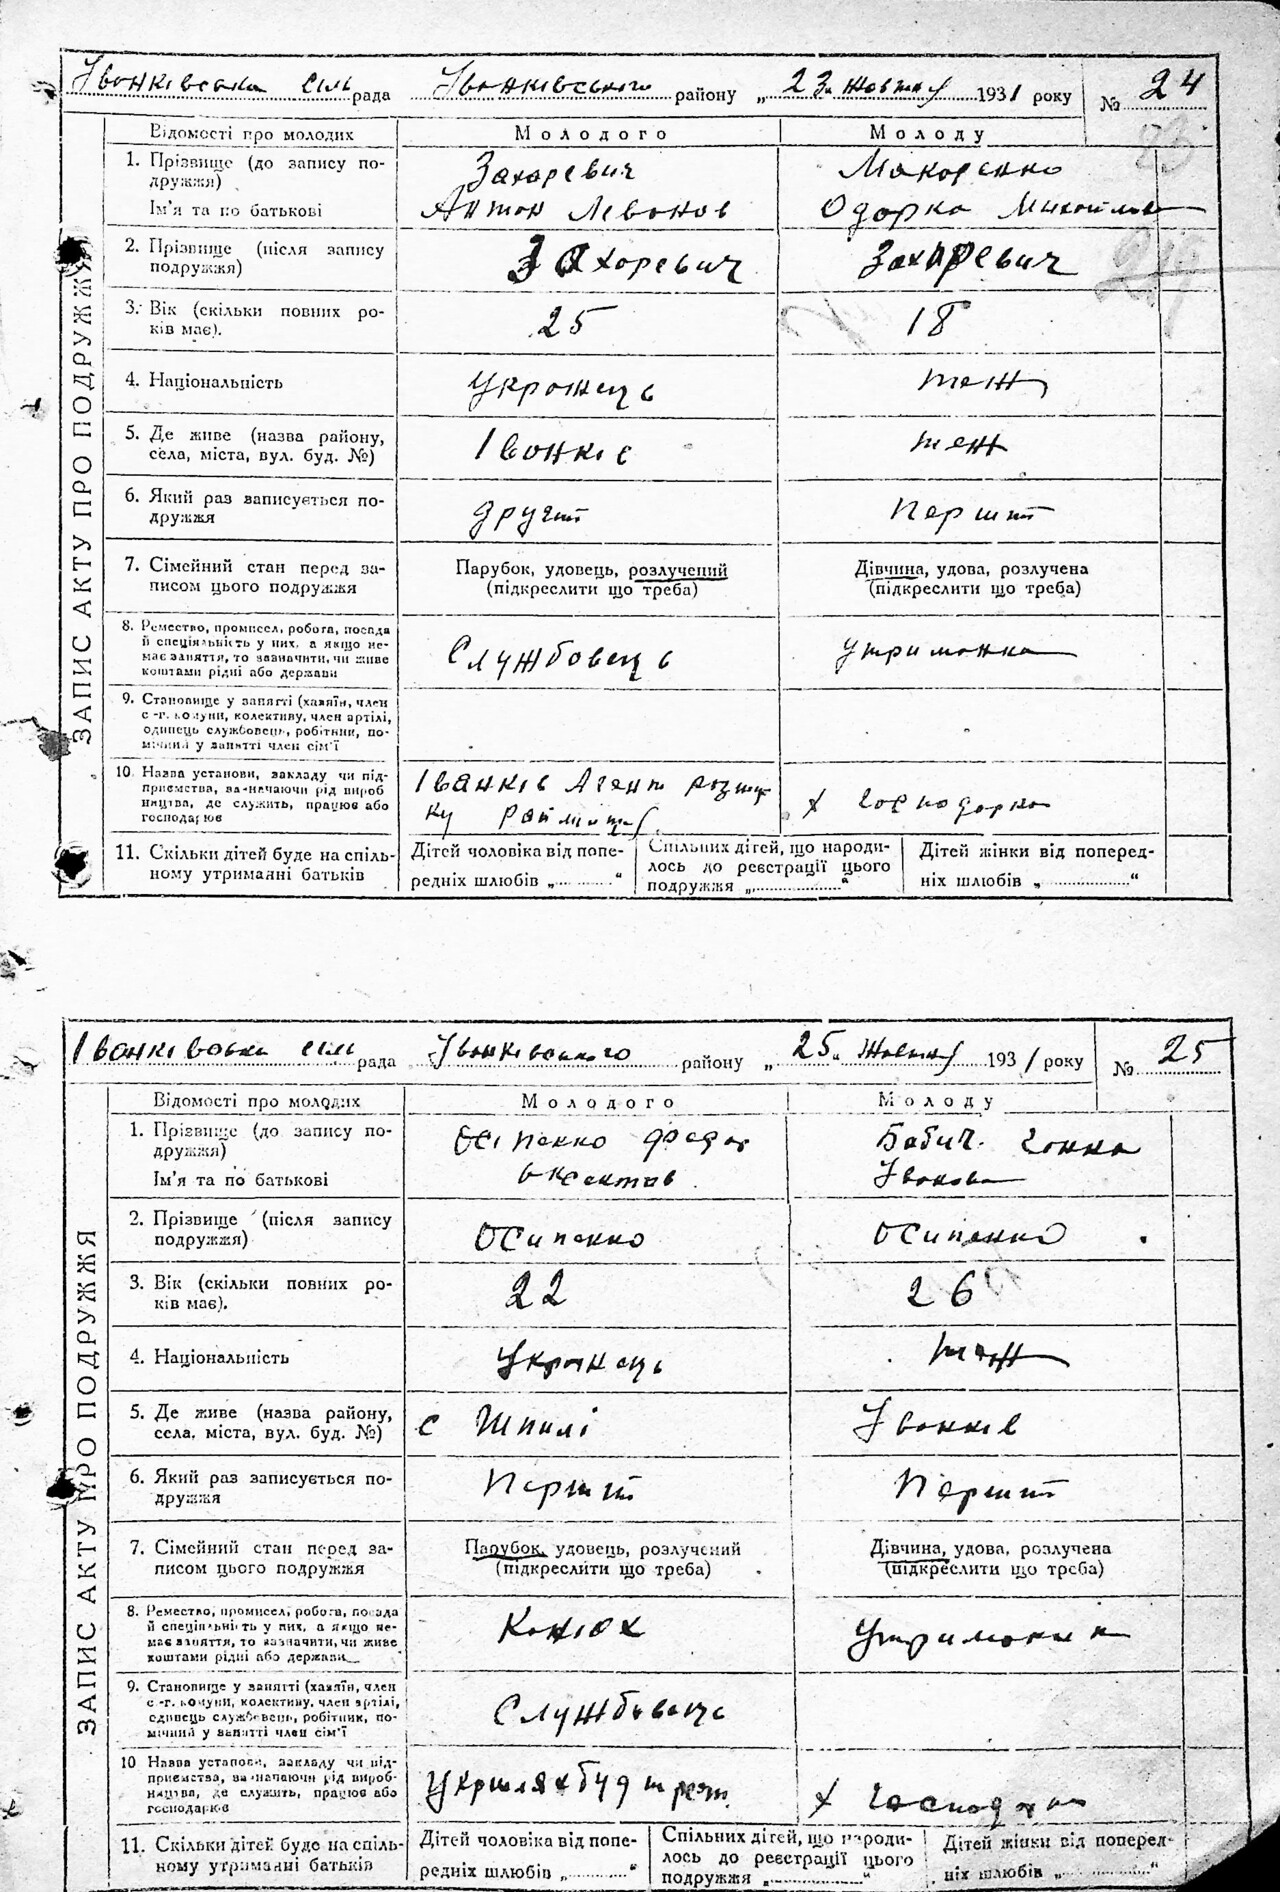 Іванківська сіль рада Іванківського району „ 23 " жовтня 1931 року № 24
83
Відомості про молодих Молодого Молоду
1. Прізвище (до запису по-
дружжя) Захаревич Макаренко
Ім'я та по батькові Антон Левонов Одарка Михайлов
2. Прізвище (після запису
подружжя) Захаревич Захаревич
219
3. Вік (скільки повних ро-
ків має). 25 18
4. Національність Українець теж
5. Де живе (назва району,
села, міста, вул. буд. №) Іванків теж
6. Який раз записується по-
дружжя другий Перший
7. Сімейний стан перед за-
писом цього подружжя Парубок, удовець, розлучений
(підкреслити що треба) Дівчина, удова, розлучена
(підкреслити що треба)
8. Ремество, промисел, робота, посада
й спеціяльність у них, а якщо не-
має заняття, то зазначити, чи живе
коштами рідні або держави Службовець утриманка
9. Становище у занятті (хазяїн, член
с.-г. комуни, колективу, член артілі,
одинець службовець, робітник, по-
мічний у занятті член сім'ї
10. Назва установи, закладу чи під-
приємства, зазначаючи рід вироб
ництва, де служить, працює або
господарює Іванків Агент розшу-
ку х господарка
11. Скільки дітей буде на спіль-
ному утриманні батьків Дітей чоловіка від попе-
редніх шлюбів „ “ Спільних дітей, що народи-
лось до реєстрації цього
подружжя „ “ Дітей жінки від поперед-
ніх шлюбів „ “
ЗАПИС АКТУ ПРО ПОДРУЖЖЯ
Іванківська сіль рада Іванківського району „ 25 " Жовтня 1931 року № 25
Відомості про молодих Молодого Молоду
1. Прізвище (до запису по-
дружжя) Осіпенко Федор Бабич Ганна
Ім'я та по батькові Іванова
2. Прізвище (після запису
подружжя) Осипенко Осипенко
3. Вік (скільки повних ро-
ків має). 22 26
4. Національність Українець теж
5. Де живе (назва району,
села, міста, вул. буд. №) с Шпилі Іванків
6. Який раз записується по-
дружжя Перший Перший
7. Сімейний стан перед за-
писом цього подружжя Парубок, удовець, розлучений
(підкреслити що треба) Дівчина, удова, розлучена
(підкреслити що треба)
8. Ремество, промисел, робота, посада
й спеціяльність у них, а якщо не-
має заняття, то зазначити, чи живе
коштами рідні або держави Конюх
9. Становище у занятті (хазяїн, член
с.-г. комуни, колективу, член артілі,
одинець службовець, робітник, по-
мічний у занятті член сім'ї Службовець
10 Назва установи, закладу чи під-
приємства, зазначаючи рід вироб-
ництва, де служить, працює або
господарює Укршляхбудтрест х
11. Скільки дітей буде на спіль-
ному утриманні батьків Дітей чоловіка від попе-
редніх шлюбів „ “ Спільних дітей, що народи-
лось до реєстрації цього
подружжя „ “ Дітей жінки від поперед-
ніх шлюбів „ “
ЗАПИС АКТУ ПРО ПОДРУЖЖЯ